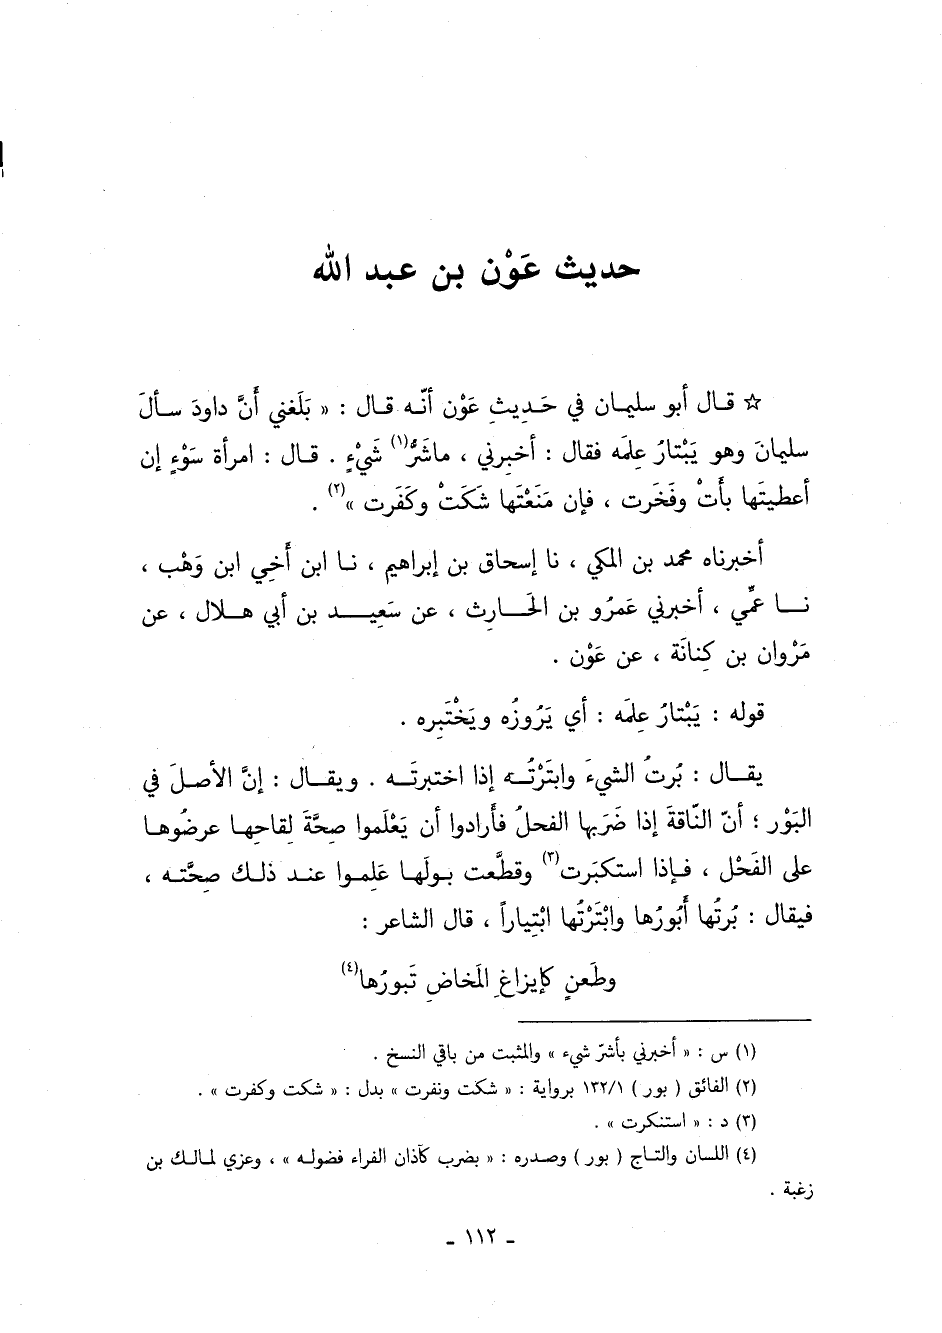 حديث عَوْن بن عبد الله
☆ قال أبو سليمان في حَديثِ عَوْن أنّه قال : « بَلَغني أَنَّ داودَ سألَ
سليمانَ وهو يَبْتارُ عِلمَه فقال : أخبرني ، ماشَرُّ(١) شَيْءٍ . قال : امرأة سَوْءٍ إن
أعطيتَها بأَتْ وفَخَرت ، فإن مَنَعْتَها شَكَتْ وكَفَرت »(٢) .
أخبرناه محمد بن المكي ، نا إسحاق بن إبراهيم ، نا ابن أَخِي ابن وَهْب ،
نا عمِّي ، أخبرني عَمرُو بن الحارث ، عن سَعِيد بن أبي هلال ، عن
مَرْوان بن كِنانَة ، عن عَوْن .
قوله : يَبْتارُ عِلمَه : أي يَرُوزُه ويَخْتَبِره .
يقال : بُرتُ الشيءَ وابتَرْتُه إذا اختبرتَه . ويقال : إنَّ الأصلَ في
البَوْر ؛ أنّ النَّاقةَ إذا ضَرَبها الفحلُ فأرادوا أن يَعْلَموا صِحَّةَ لِقاحِها عرضُوها
على الفَحْل ، فإذا استكبَرت(٣) وقطَّعت بولَها عَلِموا عند ذلك صِحَّته ،
فيقال : بُرتُها أَبُورُها وابْتَرْتُها ابْتِياراً ، قال الشاعر :
وطَعنٍ كإيزاغِ المَخاضِ تَبورُها(٤)
(١) س : « أخبرني بأشرّ شيء » والمثبت من باقي النسخ .
(٢) الفائق ( بور ) ١٣٢/١ برواية : « شكت ونفرت » بدل : « شكت وكفرت » .
(٣) د : « استنكرت » .
(٤) اللسان والتاج ( بور ) وصدره : « بضرب كآذان الفراء فضوله » ، وعزي لمالك بن
زغبة .
ـ ١١٢ ـ